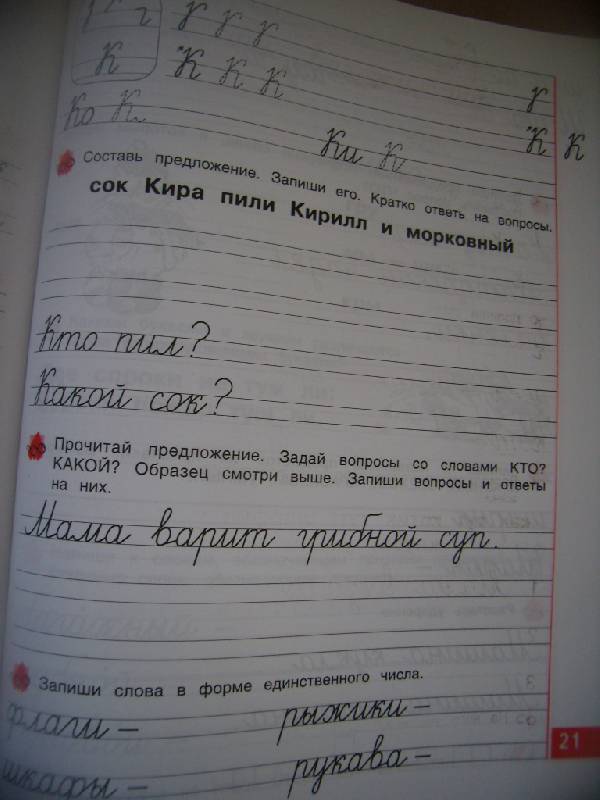 г г г г г
К К К К г
Ко К Ки К К К
Составь предложение. Запиши его. Кратко ответь на вопросы.
сок Кира пили Кирилл и морковный
Кто пил?
Какой сок?
Прочитай предложение. Задай вопросы со словами КТО?
КАКОЙ? Образец смотри выше. Запиши вопросы и ответы
на них.
Мама варит грибной суп.
Запиши слова в форме единственного числа.
флаги – рыжики –
шкафы – рукава –
21